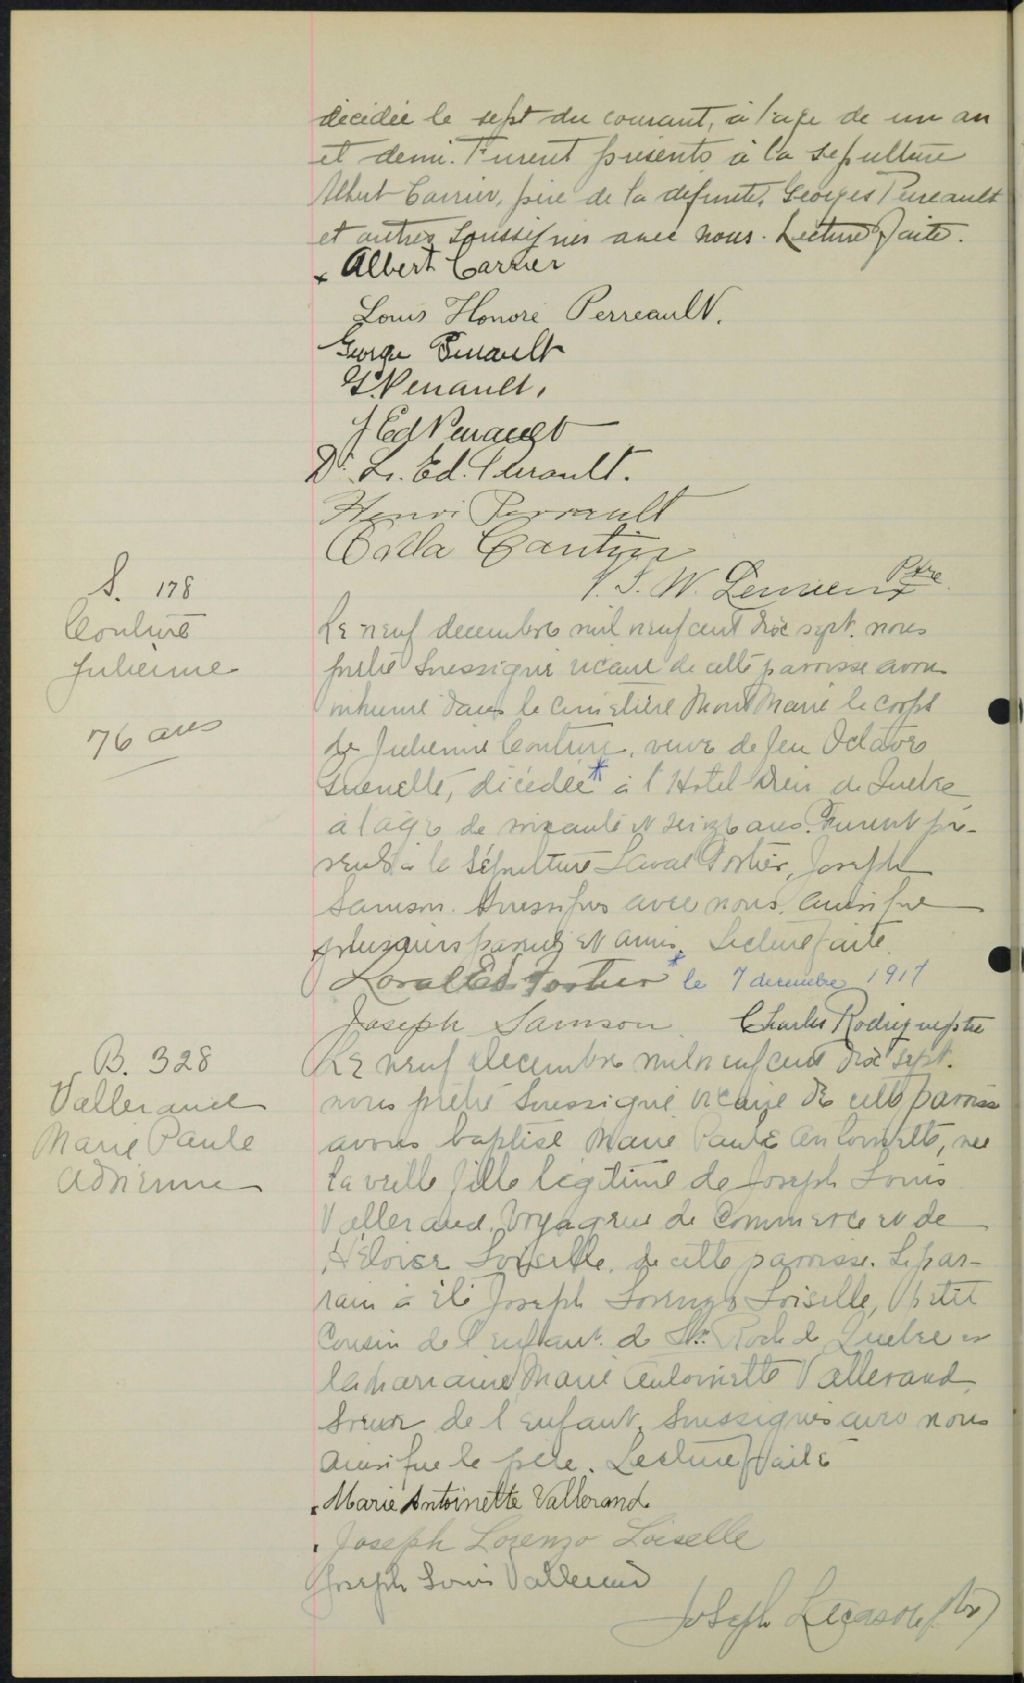 décédée le sept du courant, à l'age de un an
et demi. Furent présents à la sépulture
Albert Carrier, père de la défunte, Georges Perreault
et autres soussignés avec nous. Lecture faite.
x Albert Carrier
Louis Honoré Perreault.
George Perrault
J. Ed Perrault
Dr. L. Ed. Perrault.
Henri Perrault
Gautier
W. Lemieux Ptre
S. 178
Couture
Julienne
76 ans
Le neuf decembre mil neuf cent dix sept. nous
prêtre soussigné vicaire de cette paroisse avons
inhumé dans le cimetière Mont Marie le corps
de Julienne Couture, veuve de feu Octave
décédée * à l'Hotel-Dieu de Québec
à l'âge de soixante et seize ans. Furent pré-
sents à la sépulture Laval Fortier, Joseph
Samson. soussignés avec nous, ainsi que
plusieurs parents et amis. Lecture faite
Laval Ed Fortier * le 7 decembre 1917
Joseph Samson Charles Rodrigue ptre
B. 328
Vallerand
Marie Paule
Adrienne
Le neuf decembre mil neuf cent dix sept.
nous prêtre soussigné vicaire de cette paroisse
avons baptisé Marie Paule Antoinette, née
la veille fille légitime de Joseph Louis
Vallerand. Voyageur de Commerce et de
Héloise Loiselle, de cette paroisse. Le par-
rain a été Joseph Lorenzo Loiselle, petit
Cousin de l'enfant. de St. Roch de Québec et
la marraine Marie Antoinette Vallerand,
soeur de l'enfant. soussignés avec nous
ainsi que le père. Lecture faite
Marie Antoinette Vallerand.
Joseph Lorenzo Loiselle
Joseph Louis Vallerand
Joseph ptre